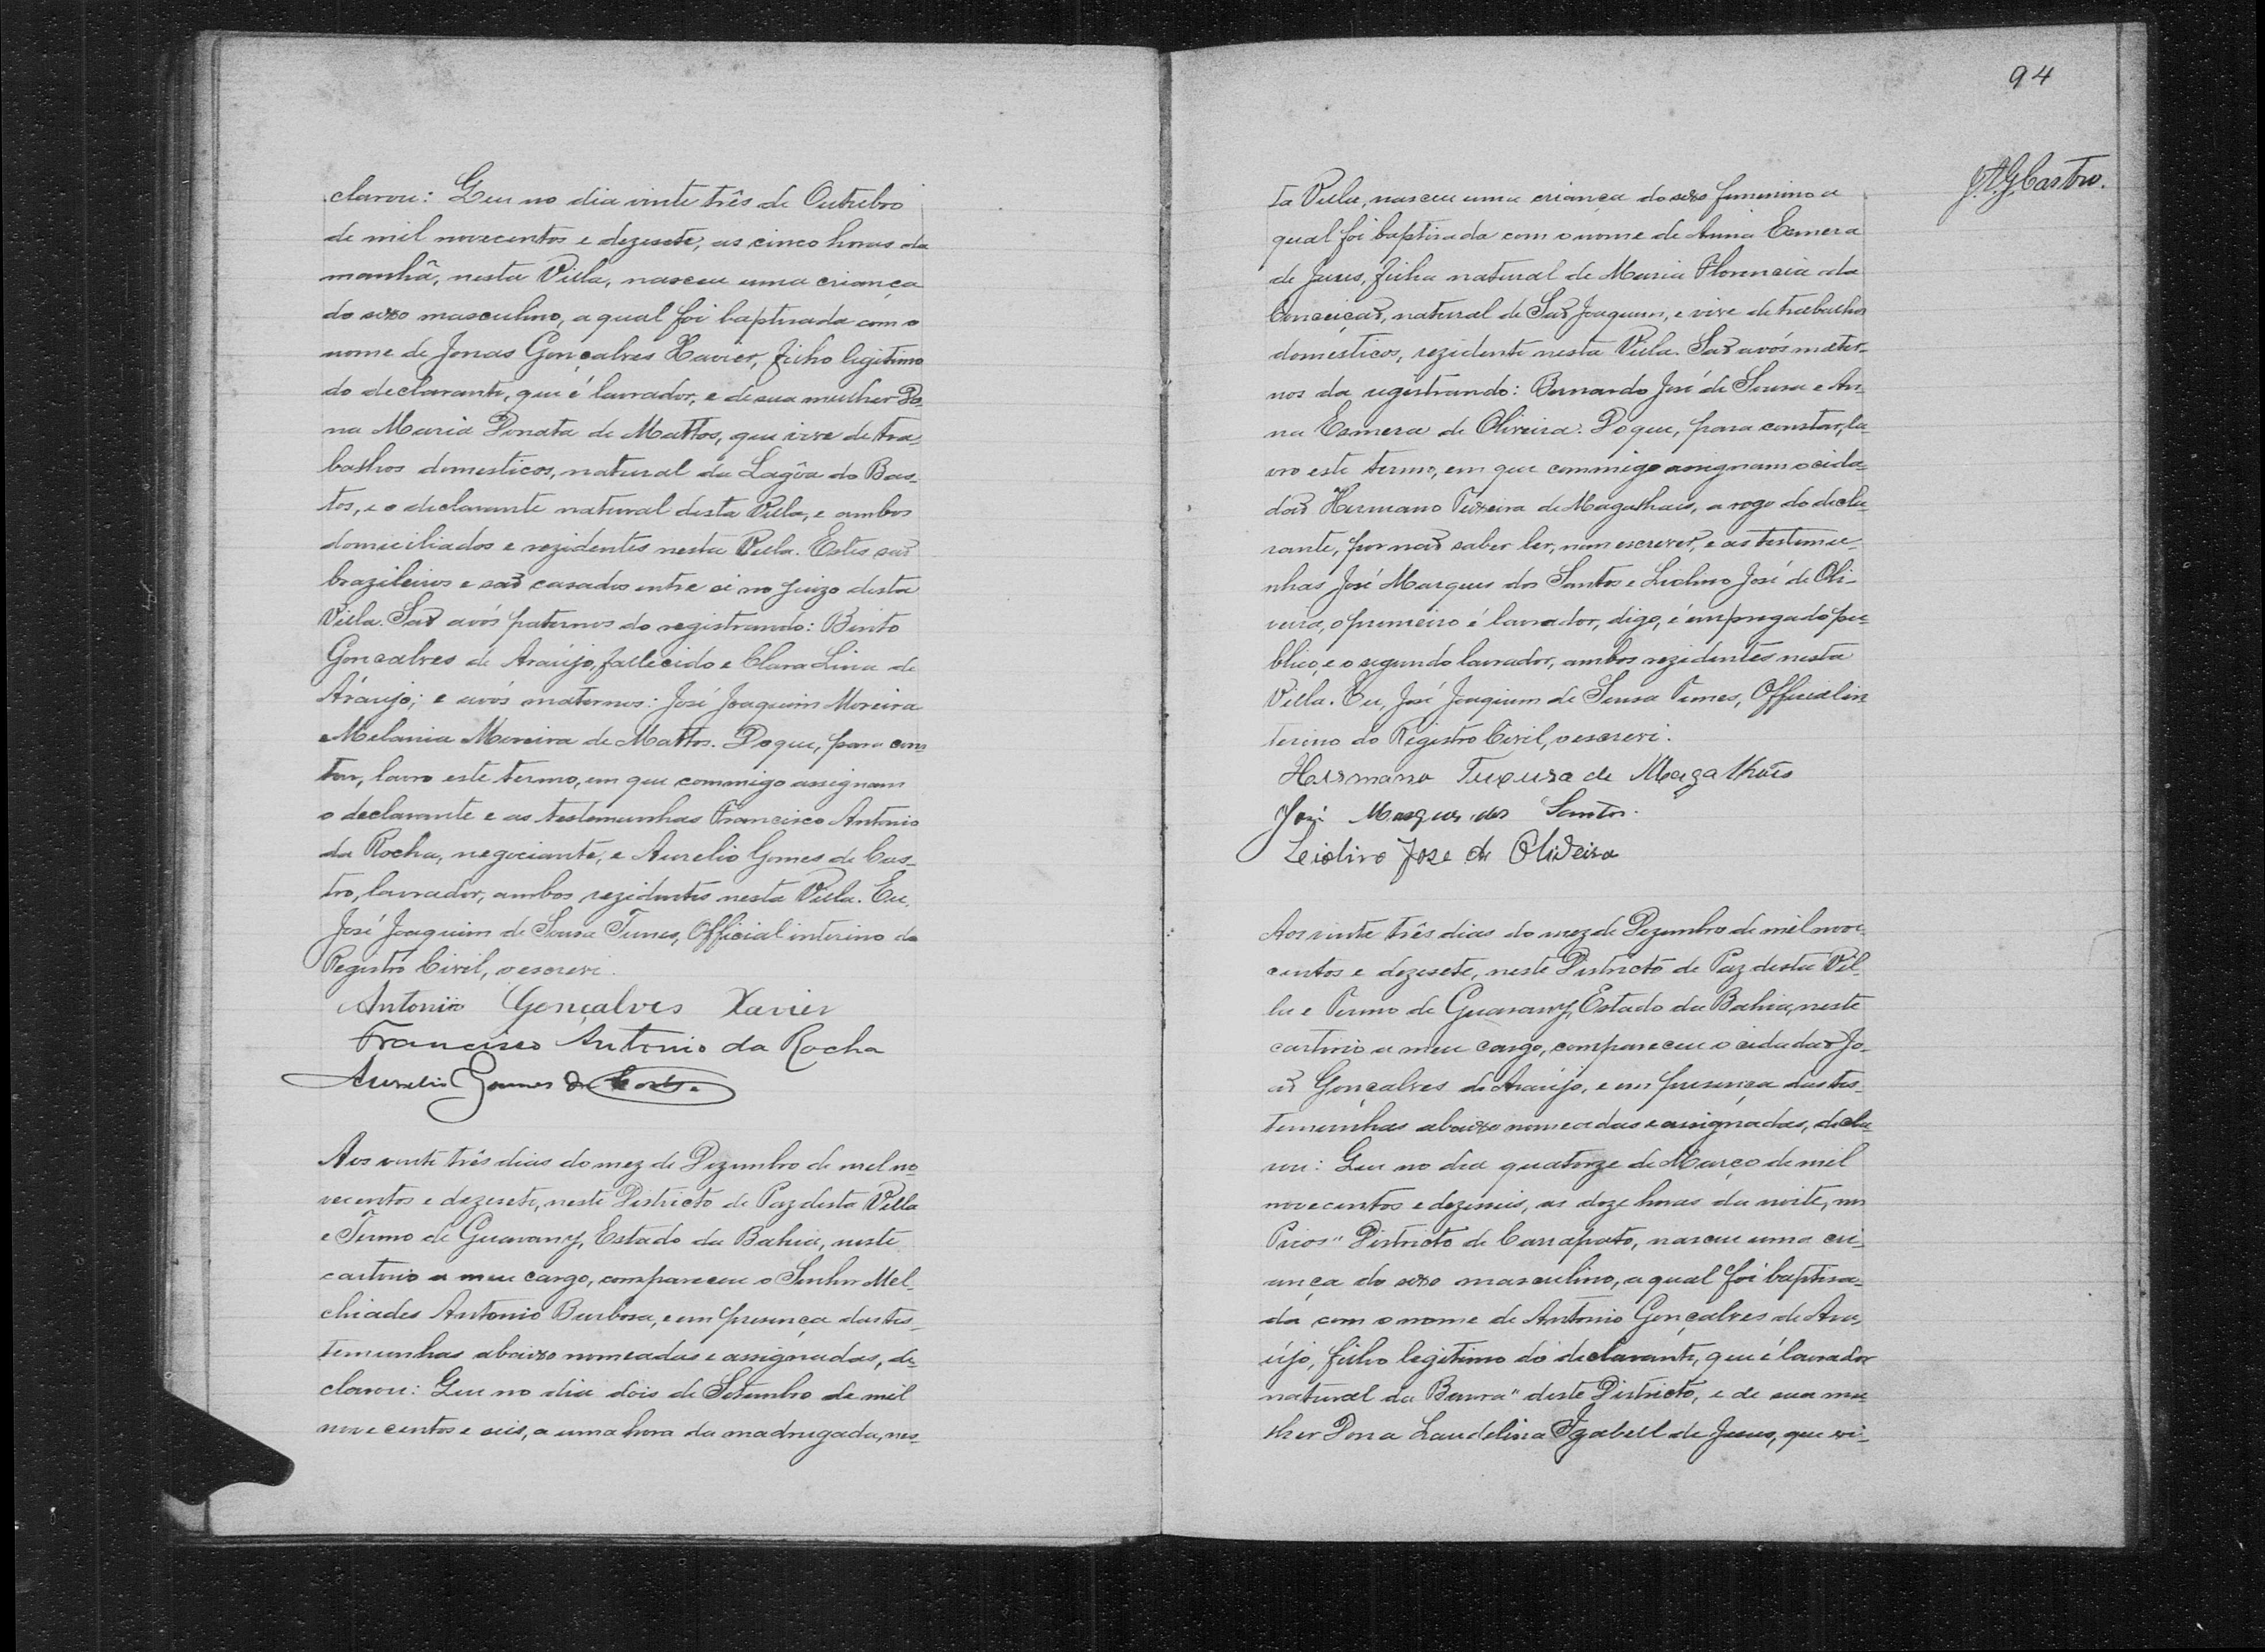 clarou: Que no dia vinte três de Outubro
de mil novecentos e dezesete, as cinco horas da
manhã, nesta Villa, nasceu uma criança
do sexo masculino, a qual foi baptisada com o
nome de Jonas Gonçalves Xavier, filho legitimo
do declarante, que é lavrador, e de sua mulher Do-
na Maria Donata de Mattos, que vive de tra
balhos domesticos, natural da Lagôa do Bas-
tos, e o declarante natural desta Villa, e ambos
domiciliados e rezidentes nesta Villa. Estes saõ
brazileiros e saõ casados entre si no juizo desta
Villa. Saõ avós paternos do registrando: Bento
Gonçalves de Araújo, fallecido e Clara Lina de
Araujo; e avós maternos: José Joaquim Moreira
e Melania Moreira de Mattos. Do que, para cons
tar, lavro este termo, em que commigo assignam
o declarante e as testemunhas Francisco Antonio
da Rocha, negociante, e Aurelio Gomes de Cas-
tro, lavrador, ambos rezidentes nesta Villa. Eu,
José Joaquim de Sousa Tunes, Official interino do
Registro Civil, o escrevi.
Antonio Gonçalves Xavier
Francisco Antonio da Rocha
Aurelio Gomes de Castro
Aos vinte três dias do mez de Dezembro de mil no
vecentos e dezesete, neste Districto de Paz desta Villa
e Termo de Guarany, Estado da Bahia, neste
cartorio a meu cargo, compareceu o Senhor Mel-
chiades Antonio Barbosa, e em presença das tes-
temunhas abaixo nomeadas e assignadas, de-
clarou: Que no dia dois de Setembro de mil
novecentos e seis, a uma hora da madrugada, nes-
94
J. A. G. Castro.
ta Villa, nasceu uma criança do sexo femenino a
qual foi baptisada com o nome de Anna Esmera
de Jesus, filha natural de Maria Florencia da
Conceiçaõ, natural de Saõ Joaquim, e vive de trabalhos
domesticos, rezidente nesta Villa. Saõ avós mater-
nos da registrando: Bernardo José de Sousa e An-
na Esmera de Oliveira. Do que, para constar, la-
vro este termo, em que commigo assignam o cida-
daõ Hermano Teixeira de Magalhais, a rogo do decla-
rante, por naõ saber ler, nem escrever, e as testemu-
nhas José Marques dos Santos e Liolino José de Oli-
veira, o premeiro é lavrador, digo, é empregado pu-
blico, e o segundo lavrador, ambos rezidentes nesta
Villa. Eu, José Joaquim de Sousa Tunes, Official in
terino do Registro Civil, o escrevi.
Hermano Teixeira de Magalhais
José Marques dos Santos.
Leiolino Jose de Oliveira
Aos vinte três dias do mez de Dezembro de mil nove-
centos e dezesete, neste Districto de Paz desta Vil-
la e Termo de Guarany, Estado da Bahia, neste
cartorio a meu cargo, compareceu o cidadaõ Jo-
aõ Gonçalves de Araújo, e em presença das tes-
temunhas abaixo nomeadas e assignadas, decla-
rou: Que no dia quatorze de Março de mil
novecentos e dezeseis, as doze horas da noite, no
Picos" Districto de Carrapato, nasceu uma cri-
ança do sexo masculino, a qual foi baptisa-
da com o nome de Antonio Gonçalves de Ara-
újo, filho legitimo do declarante, que é lavrador
natural da Barra" deste Districto, e de sua mu-
lher Dona Laudelina Izabell de Jesus, que vi-